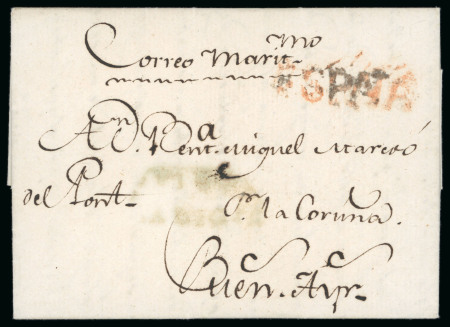 Correo Marit.mo
ESPAÑA
A D.n Vent.a Miguel Marcó
del Pont
P.r la Coruña.
Buen.s Ay.s